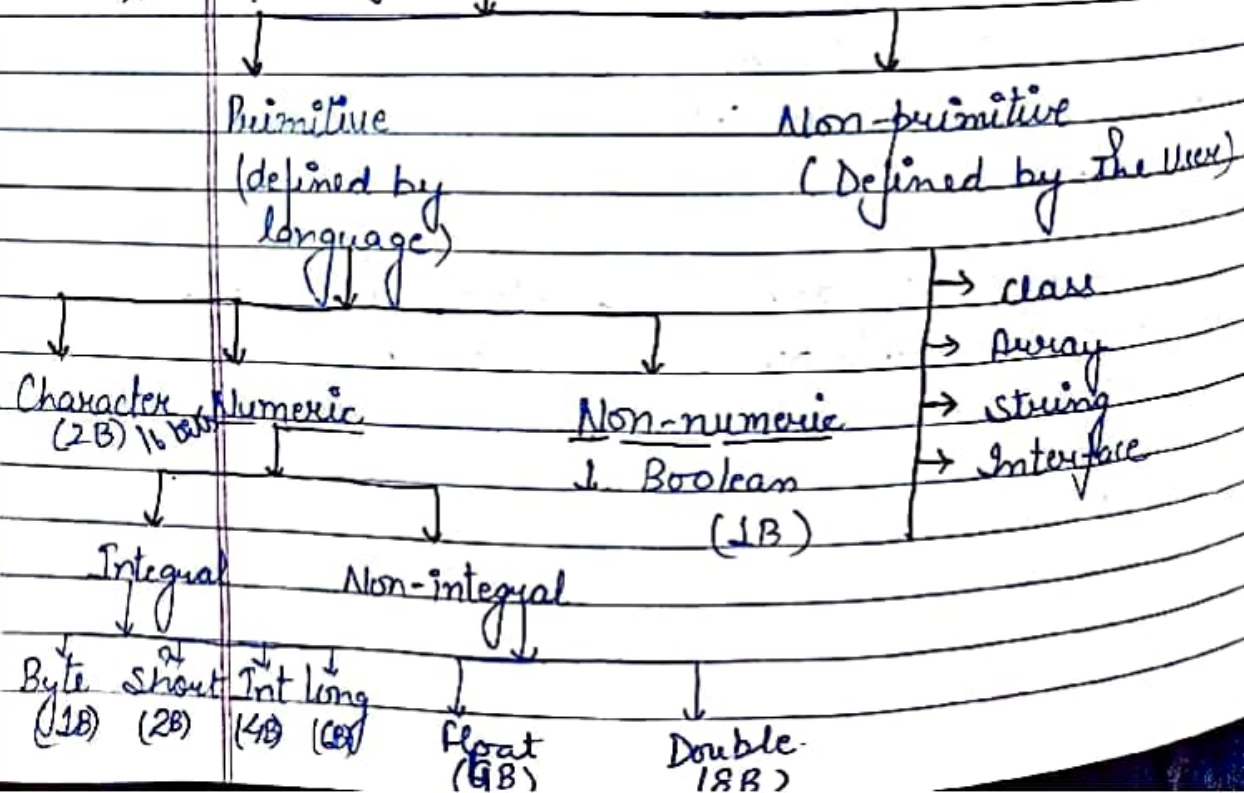 Primitive
(defined by
language)
Non-primitive
(Defined by the User)
→ class
→ Array
→ String
→ Interface
Character
(2B) 16 bits
Numeric
Non-numeric
↓ Boolean
(1B)
Integral
Non-integral
Byte Short Int long
(1B) (2B) (4B)
Float
Double
(8B)